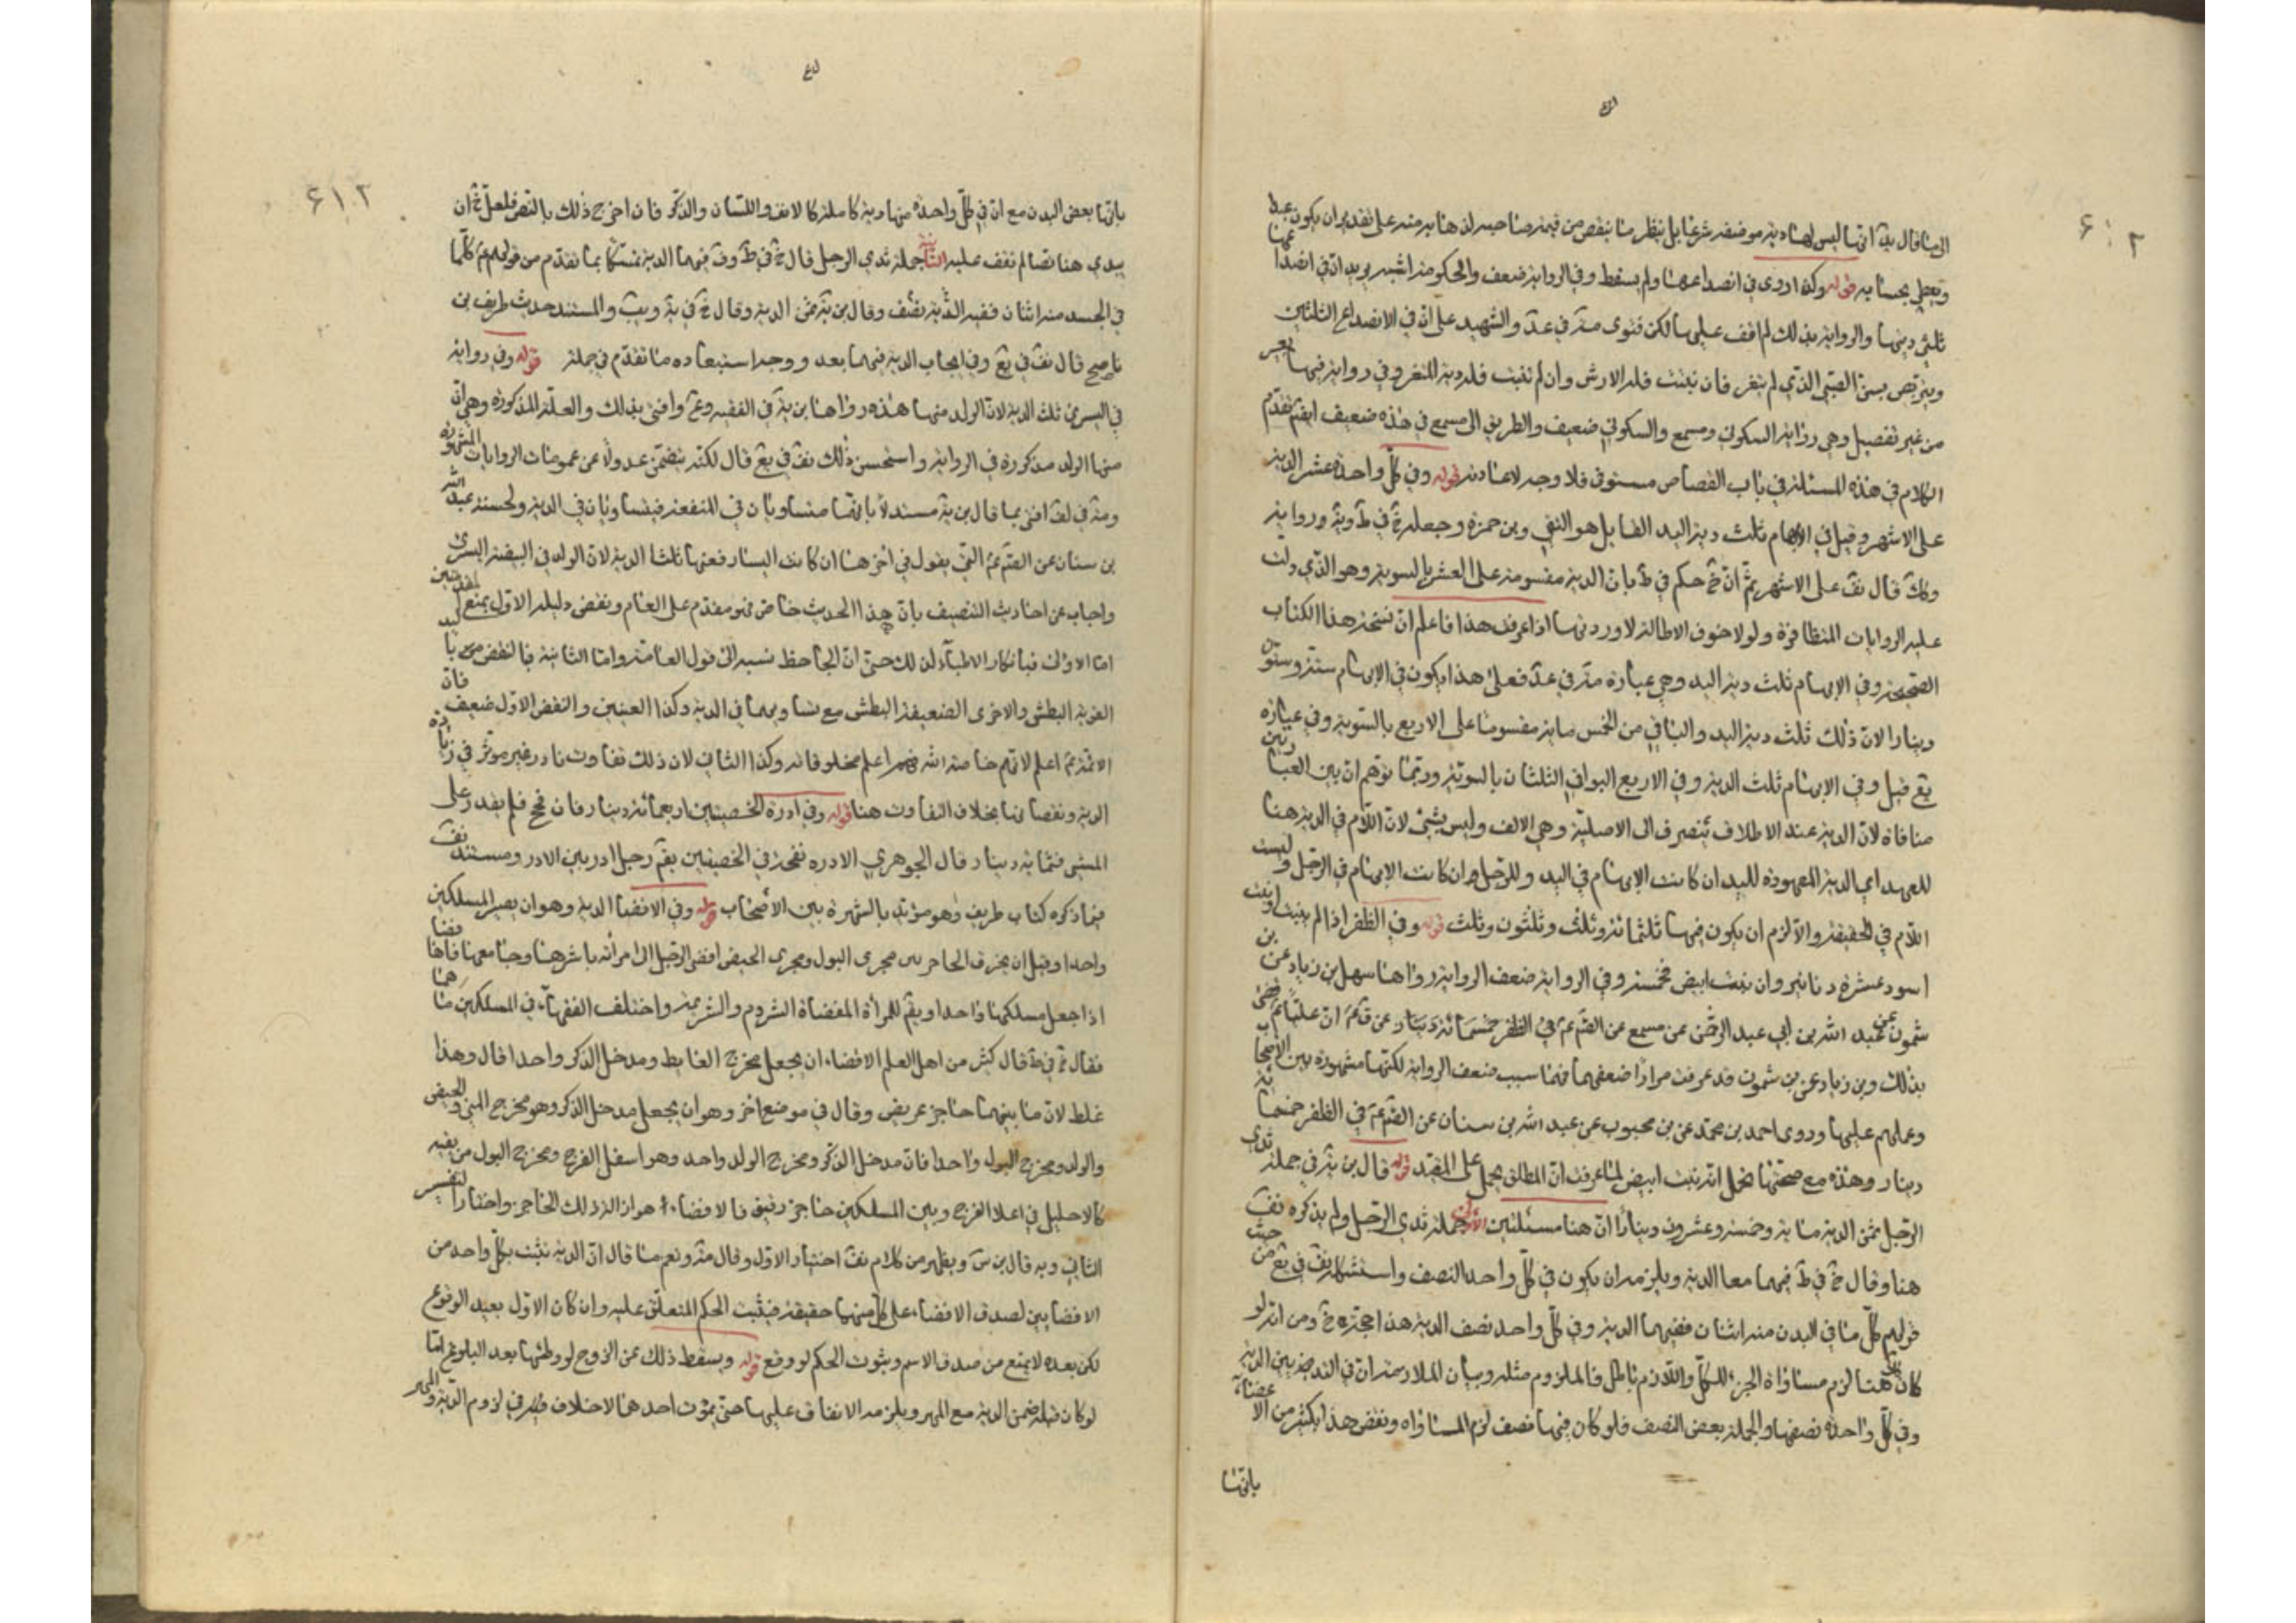 الى ما قال يه انها ليس لها دية موضفة شرعا بل ينظر ما ينقص من قيمة صاحبه لذهابه منه على تقدير ان يكون عبدا
ويعمل بحسابه قوله وكذا روى في انصداعها ولم يسقط وفي الرواية ضعف والحكومة اشبه يريد ان في انصداعها
ثلثي ديتها والرواية بذلك لم اقف عليها لكن فتوى مة في عد والشهيد على ان في الانصداع الثلثين
ويتربص بسن الصبي الذي لم يثغر فان نبتت فله الارش وان لم تنبت فله دية المثغر وفي رواية فيها بعير
من غير تفصيل وهي رواية السكوني ومسمع والسكوني ضعيف والطريق الى مسمع في هذه ضعيف ايضم تقدم
الكلام في هذه المسئلة في باب القصاص مستوفى فلا وجه لاعادته قوله وفي كل واحدة عشر الدية
على الاشهر وقيل في الابهام ثلث دية اليد القايل هو التقي وبن حمزة وجعله خ في ط وية ورواية
وكك قال نف على الاشهر ثم ان خ حكم في ط بان الدية مقسومة على العشر بالسوية وهو الذي دلت
عليه الروايات المتظافرة ولولا خوف الاطالة لاوردتها اذا عرفت هذا فاعلم ان نسخة هذا الكتاب
الصحيحة وفي الابهام ثلث دية اليد وهي عبارة مة في عد فعلى هذا يكون في الابهام ستة وستون
دينارا لان ذلك ثلث دية اليد والباقي من الخمس ماية مقسوما على الاربع بالسوية وفي عبارة
يع قيل وفي الابهام ثلث الدية وفي الاربع البواقي الثلثان بالسوية وربما توهم ان بين العبارتين
منافاة لان الدية عند الاطلاق تنصرف الى الاصلية وهي الالف وليس بشئ لان اللام في الدية هنا
للعهد اي الدية المعهودة لليد ان كانت الابهام في اليد وللرجل ان كانت الابهام في الرجل وليست
اللام في الحقيقة والا لزم ان يكون فيها ثلثمائة وثلث وثلثون وثلث قوله وفي الظفر اذا لم ينبت او نبت
اسود عشرة دنانير وان نبت ابيض فخمسة وفي الرواية ضعف الرواية رواها سهل بن زياد عن بن
شمون عن عبد الله بن ابي عبد الرحمن عن مسمع عن الصم عم في الظفر خمسمائة دينار عن ق عم ان عليا عم قضى
بذلك وبن زياد عن بن شمون قد عرفت مرارا ضعفهما فهنا سبب ضعف الرواية لكنها مشهورة بين الاصحاب
وعملهم عليها وروى احمد بن محمد عن بن محبوب عن عبد الله بن سنان عن الصم عم في الظفر خمسة
دينار وهذه مع صحتها تحمل انه نبت ابيض لما عرفت ان المطلق يحمل على المقيد قوله قال بن يه في جملة ثدي
الرجل ثمن الدية ماية وخمسة وعشرون دينارا ان هنا مسئلتين الاولى جملة ثدي الرجل ولم يذكره نف
هنا وقال خ في ط فيهما معا الدية ويلزمه ان يكون في كل واحد النصف واستشكله نف في يع من حيث
قولهم كل ما في البدن منه اثنان ففيهما الدية وفي كل واحد نصف الدية هذا حجة خ ومن انه لو
كان هنا لزم مساواة الجزء للكل واللازم باطل فالملزوم مثله وبيان الملازمة ان في الثدي بين الدية
وفي كل واحدة نصفها والحلمة بعض النصف فلو كان فيها نصف لزم المساواه ونقض هذا بكثير من الاعضاء
بانها
بانها بعض البدن مع ان في كل واحدة منها دية كاملة كالانف واللسان والذكر فان اخرج ذلك بالنص فلعل خ ان
يبدي هنا نصا لم نقف عليه الثانية حلمة ثدي الرجل قال خ في ط وف فيهما الدية تمسكا بما تقدم من قولهم عم كلما
في الجسد منه اثنان ففيه الدية نصف وقال بن يه ثمن الدية وقال خ في ية ويب والمستند حديث طريف بن
ناصح قال نف في يع وفي ايجاب الدية فيهما بعد ووجه استبعاده ما تقدم في جملة قوله وفي رواية
في اليسرى ثلث الدية لان الولد منها هذه رواها بن يه في الفقيه وع وافتى بذلك والعلة المذكورة وهي ان
منها الولد مذكورة في الرواية واستحسن ذلك نف في يع قال لكنه يتضمن عدولا عن عمومات الروايات المشهورة
ومة في لف افتى بما قال بن يه مستدلا بانهما متساويان في المنفعة فيتساويان في الدية ولحسنة عبد الله
بن سنان عن الصم عم التي يقول في اخرها ان كانت اليسار ففيها ثلثا الدية لان الولد في البيضة اليسرى
واجاب عن احاديث التنصيف بان هذا الحديث خاص فهو مقدم على العام ونقض دليله الاول بمنع المقدمتين
اما الاولى فبانكار الاطباء لذلك حتى ان الجاحظ نسبه الى قول العامة واما الثانية فبالنقض من باليد
القوية البطش والاخرى الضعيفة البطش مع تساويهما في الدية وكذا العينين والنقض الاول ضعيف فان
الائمة عم اعلم لانهم خاصة الله فهم اعلم بمخلوقاته وكذا الثاني لان ذلك تفاوت نادر غير موثر في زيادة
الدية ونقصانها بخلاف التفاوت هنا قوله وفي ادرة الخصيتين اربعمائة دينار فان فحج فلم يقدر على
المشي فثمانية دينار قال الجوهري الادره نفخة في الخصيتين يقم رجل ادر بين الادر ومستند نف
فيما ذكره كتاب طريف وهو مؤيد بالشهرة بين الاصحاب قوله وفي الافضا الدية وهو ان يصير المسلكين
واحدا وقيل ان يخرق الحاجز بين مجرى البول ومجرى الحيض افضى الرجل الى امرأته باشرها وجامعها فافضاها
اذا جعل مسلكها واحدا ويقم للمرأة المفضاة الشروم والشريم واختلف الفقهاء في المسلكين ما هما
فقال خ في ط قال كثير من اهل العلم الافضاء ان يجعل مخرج الغايط ومدخل الذكر واحدا قال وهذا
غلط لان ما بينهما حاجز عريض وقال في موضع اخر وهو ان يجعل مدخل الذكر وهو مخرج المني والحيض
والولد ومخرج البول واحدا فان مدخل الذكر ومخرج الولد واحد وهو اسفل الفرج ومخرج البول من ثقبة
كالاحليل في اعلا الفرج وبين المسلكين حاجز رقيق فالافضاء هو ازالة ذلك الحاجز واختار التفسير
الثاني وبه قال بن س ويظهر من كلام نف اختيار الاول وقال مة ونعم ما قال ان الدية تثبت بكل واحد من
الافضايين لصدق الافضاء على كل منهما حقيقة فيثبت الحكم المتعلق عليه وان كان الاول بعيد الوقوع
لكن بعده لا يمنع من صدق الاسم وثبوت الحكم لو وقع قوله ويسقط ذلك عن الزوج لو وطئها بعد البلوغ اما
لو كان قبله ضمن الدية مع المهر ويلزمه الانفاق عليها حتى يموت احدهما لا خلاف في لزوم الدية والمهر